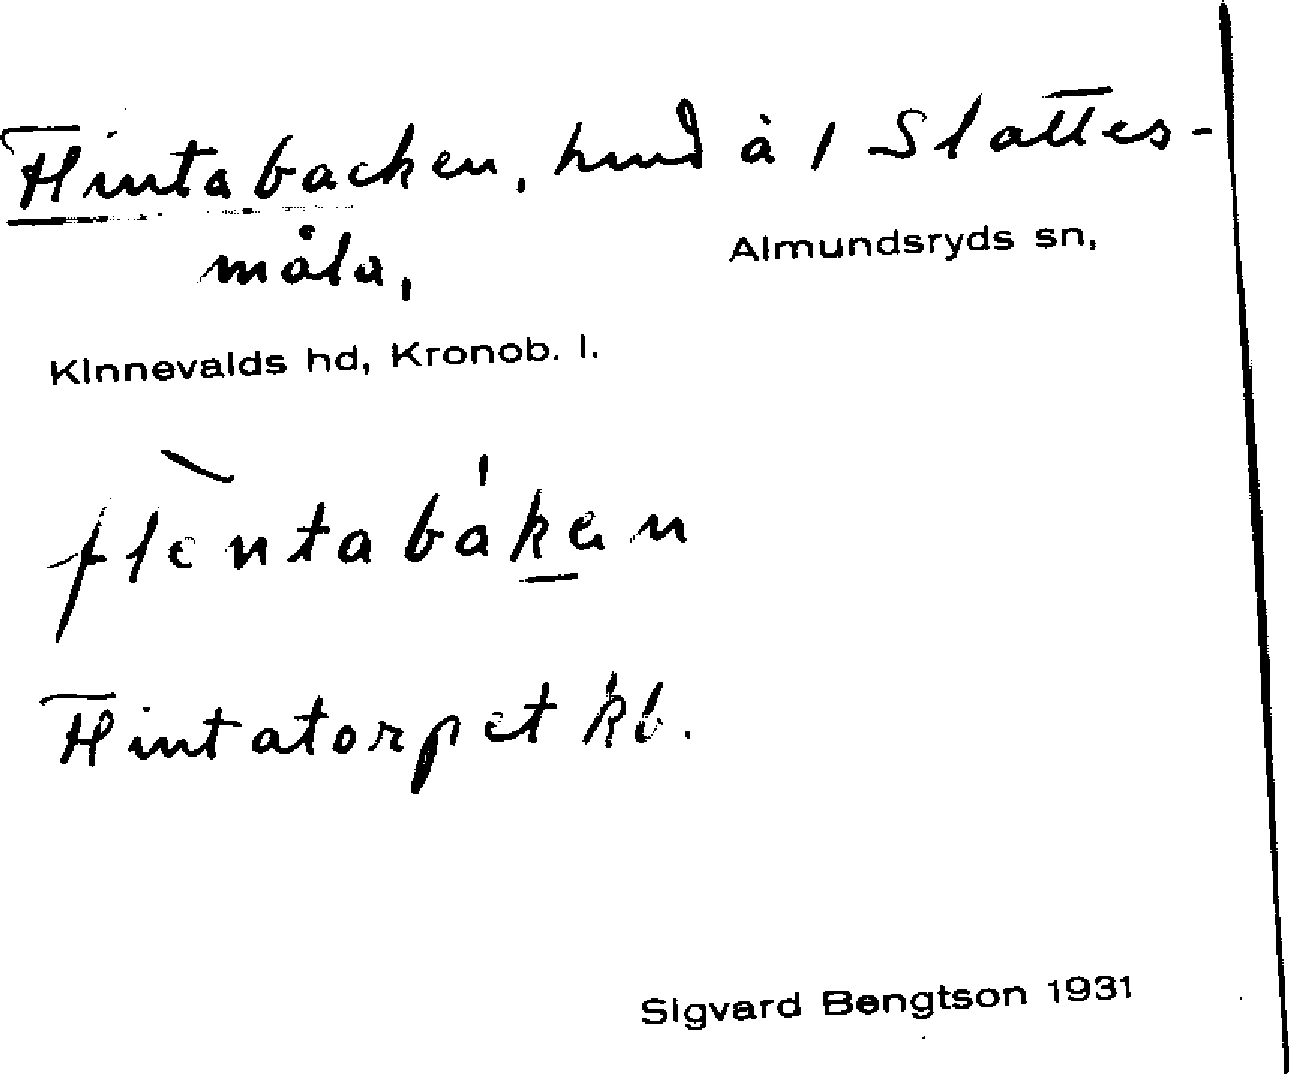 Flintabacken, hmd å 1 Slättes-
måla, Almundsryds sn,
Kinnevalds hd, Kronob. l.
flentabaken
Flintatorpet kb.
Sigvard Bengtson 1931